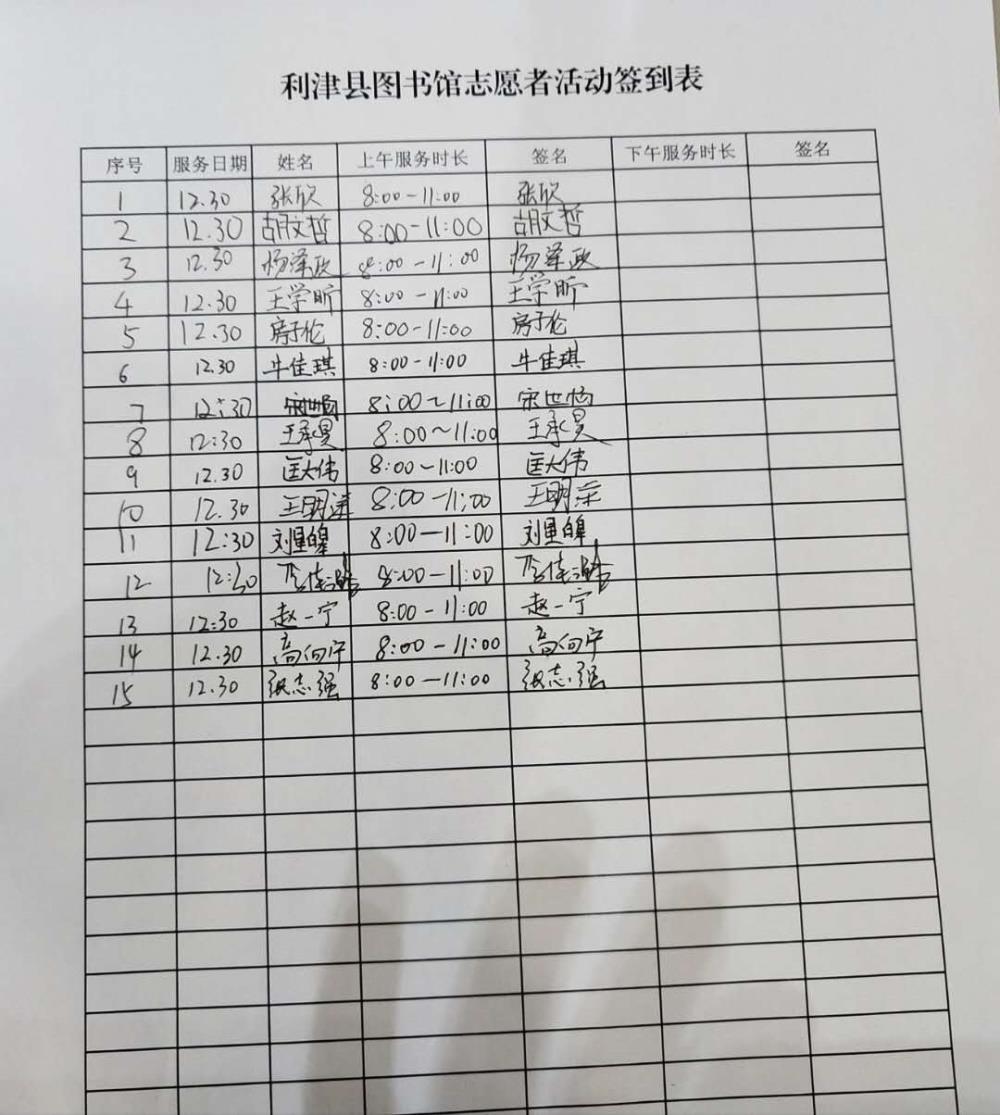 利津县图书馆志愿者活动签到表
序号 服务日期 姓名 上午服务时长 签名 下午服务时长 签名
1 12.30 张欣 8:00-11:00 张欣
2 12.30 胡文哲 8:00-11:00 胡文哲
3 12.30 杨泽政 8:00-11:00 杨泽政
4 12.30 王学昕 8:00-11:00 王学昕
5 12.30 房子伦 8:00-11:00 房子伦
6 12.30 牛佳琪 8:00-11:00 牛佳琪
7 12:30 宋世 8:00~11:00 宋世
8 12:30 王承昊 8:00~11:00 王承昊
9 12.30 匡大伟 8:00-11:00 匡大伟
10 12.30 王明洋 8:00-11:00 王明洋
11 12:30 刘 8:00-11:00 刘
12 12:30 8:00-11:00
13 12:30 赵一宁 8:00-11:00 赵一宁
14 12.30 高向宁 8:00-11:00 高向宁
15 12.30 张志强 8:00-11:00 张志强